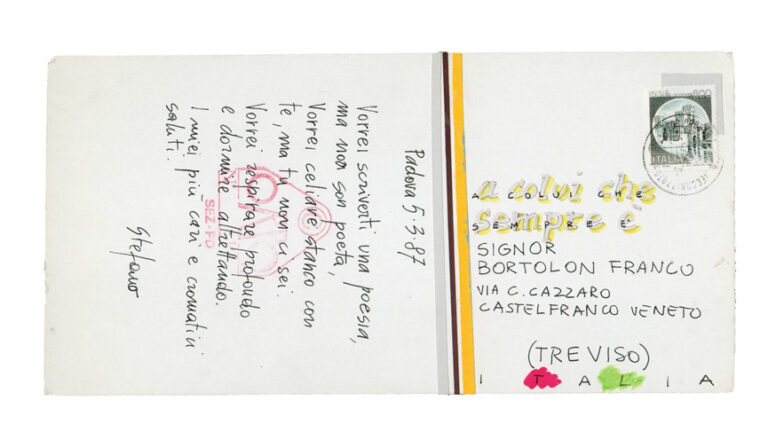 Padova 5.3.87
Vorrei scriverti una poesia,
ma non son poeta,
Vorrei celiare stanco con
te, ma tu non ci sei.
Vorrei respirare profondo
e dormire altrettando.
I miei più cari e cromatici
saluti.
Stefano
SEZ-PD
ITALIA
a colui che
A COLUI CHE
sempre è
SEMPRE È
SIGNOR
BORTOLON FRANCO
VIA C. CAZZARO
CASTELFRANCO VENETO
(TREVISO)
I T A L I A